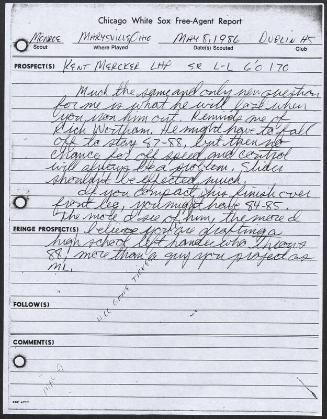 Chicago White Sox Free-Agent Report
Monroe Marysville Ohio May 8, 1986 Dublin HS
Scout Where Played Date(s) Scouted Club
PROSPECT(S) Kent Mercker LHP SR L-L 6'0 170
Much the same and only new question
for me is what he will face when
you run him out. Reminds me of
Rich Wortham. He might have to fall
off to stay 87-88, but then no
chance for off speed and control
will always be a problem. Slider
shouldn't be affected much.
If you compact this finish over
front leg, you might have 84-85.
The more I see of him, the more I
FRINGE PROSPECT(S) believe you are drafting a
high school left hander who throws
88, more than a guy you project as
ML.
FOLLOW(S)
COMMENT(S)